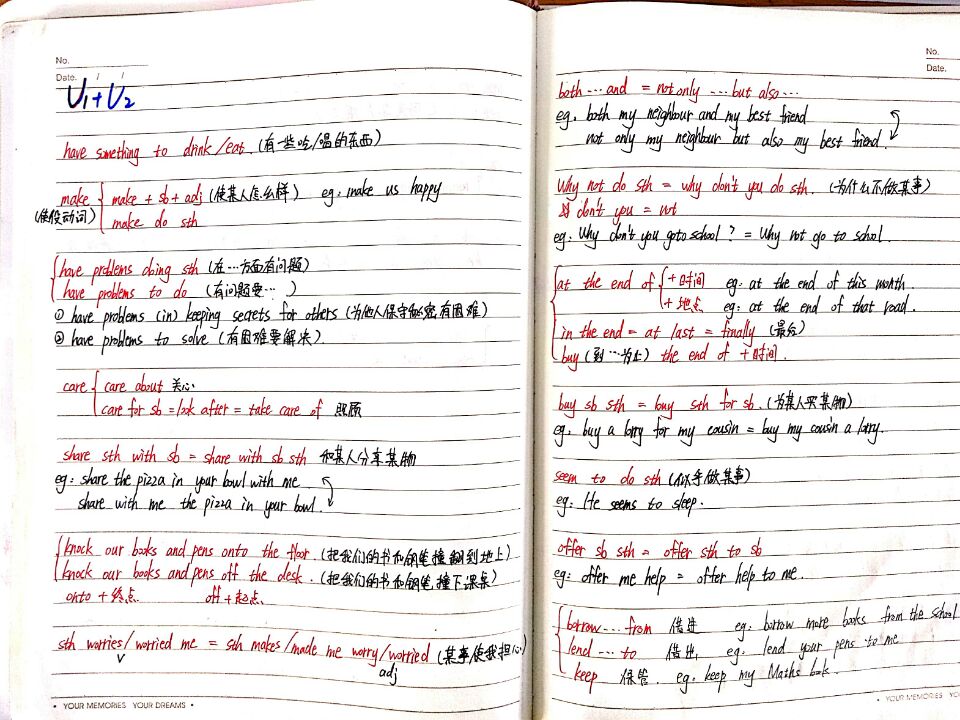 No.
Date. / /
U1+U2
have something to drink/eat. (有一些吃/喝的东西)
make (使役动词)
make + sb + adj (使某人怎么样) eg: make us happy
make do sth
have problems doing sth (在…方面有问题)
have problems to do (有问题要…)
① have problems (in) keeping secrets for others (为他人保守秘密有困难)
② have problems to solve (有困难要解决).
care
care about 关心
care for sb = look after = take care of 照顾
share sth with sb = share with sb sth 和某人分享某物
eg: share the pizza in your bowl with me
share with me the pizza in your bowl.
knock our books and pens onto the floor. (把我们的书和钢笔撞翻到地上)
knock our books and pens off the desk. (把我们的书和钢笔撞下课桌)
onto + 终点 off + 起点
sth worries/worried me = sth makes/made me worry/worried (某事使我担心)
v adj
• YOUR MEMORIES YOUR DREAMS •
No.
Date.
both … and = not only … but also …
eg. both my neighbour and my best friend
not only my neighbour but also my best friend.
Why not do sth = why don't you do sth. (为什么不做某事)
don't you = not
eg: Why don't you go to school? = Why not go to school.
at the end of
+ 时间 eg: at the end of this month.
+ 地点 eg: at the end of that road.
in the end = at last = finally (最后)
buy (到…为止) the end of + 时间.
buy sb sth = buy sth for sb. (为某人买某物)
eg. buy a lorry for my cousin = buy my cousin a lorry.
seem to do sth (似乎做某事)
eg: He seems to sleep.
offer sb sth = offer sth to sb
eg: offer me help = offer help to me.
borrow … from 借进 eg: borrow more books from the school
lend … to 借出, eg: lend your pens to me
keep 保管. eg: keep my Maths
• YOUR MEMORIES YO